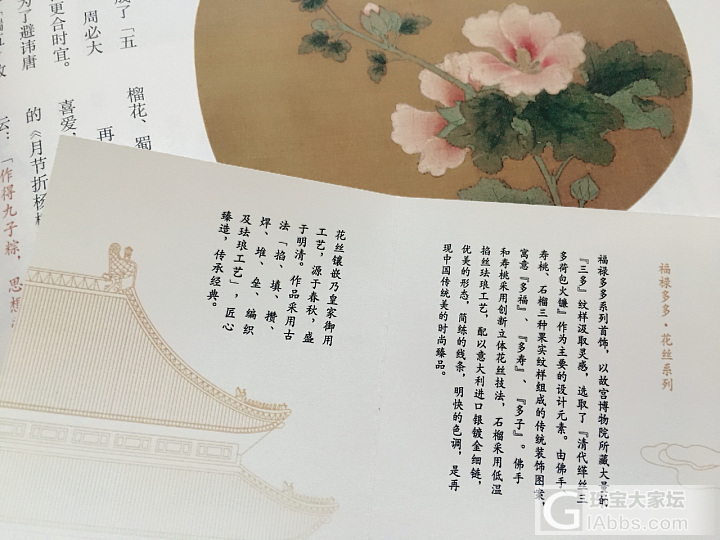 成了「五
周必大
更合时宜。
为了避讳唐
榴花、蜀
再
喜爱,
的《月节折杨
云:「作得九子粽,思想
福禄多多·花丝系列
福禄多多系列首饰,以故宫博物院所藏大量的
『三多』纹样汲取灵感,选取了『清代缂丝三
多荷包火镰』作为主要的设计元素。由佛手、
寿桃、石榴三种果实纹样组成的传统装饰图案,
寓意『多福』、『多寿』、『多子』。佛手
和寿桃采用创新立体花丝技法,石榴采用低温
掐丝珐琅工艺,配以意大利进口银镀金细链,
优美的形态,简练的线条,明快的色调,是再
现中国传统美的时尚臻品。
花丝镶嵌乃皇家御用
工艺,源于春秋,盛
于明清。作品采用古
法「掐、填、攒、
焊、堆、垒、编织
及珐琅工艺」,匠心
臻造,传承经典。
珠宝大家坛
GIAbbs.com